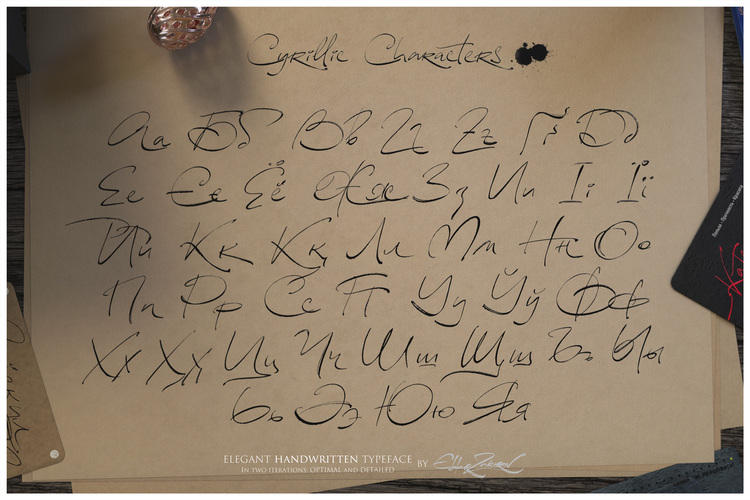 Cyrillic Characters
Аа Бб Вв Гг Ґґ Дд
Ее Єє Ёё Жж Зз Ии Іі Її
Йй Кк Ққ Лл Мм Нн Оо
Пп Рр Сс Тт Уу Ўў Фф
Хх Ҳҳ Цц Чч Шш Щщ Ъъ Ыы
Ьь Ээ Юю Яя
ELEGANT HANDWRITTEN TYPEFACE BY
IN TWO ITERATIONS: OPTIMAL AND DETAILED